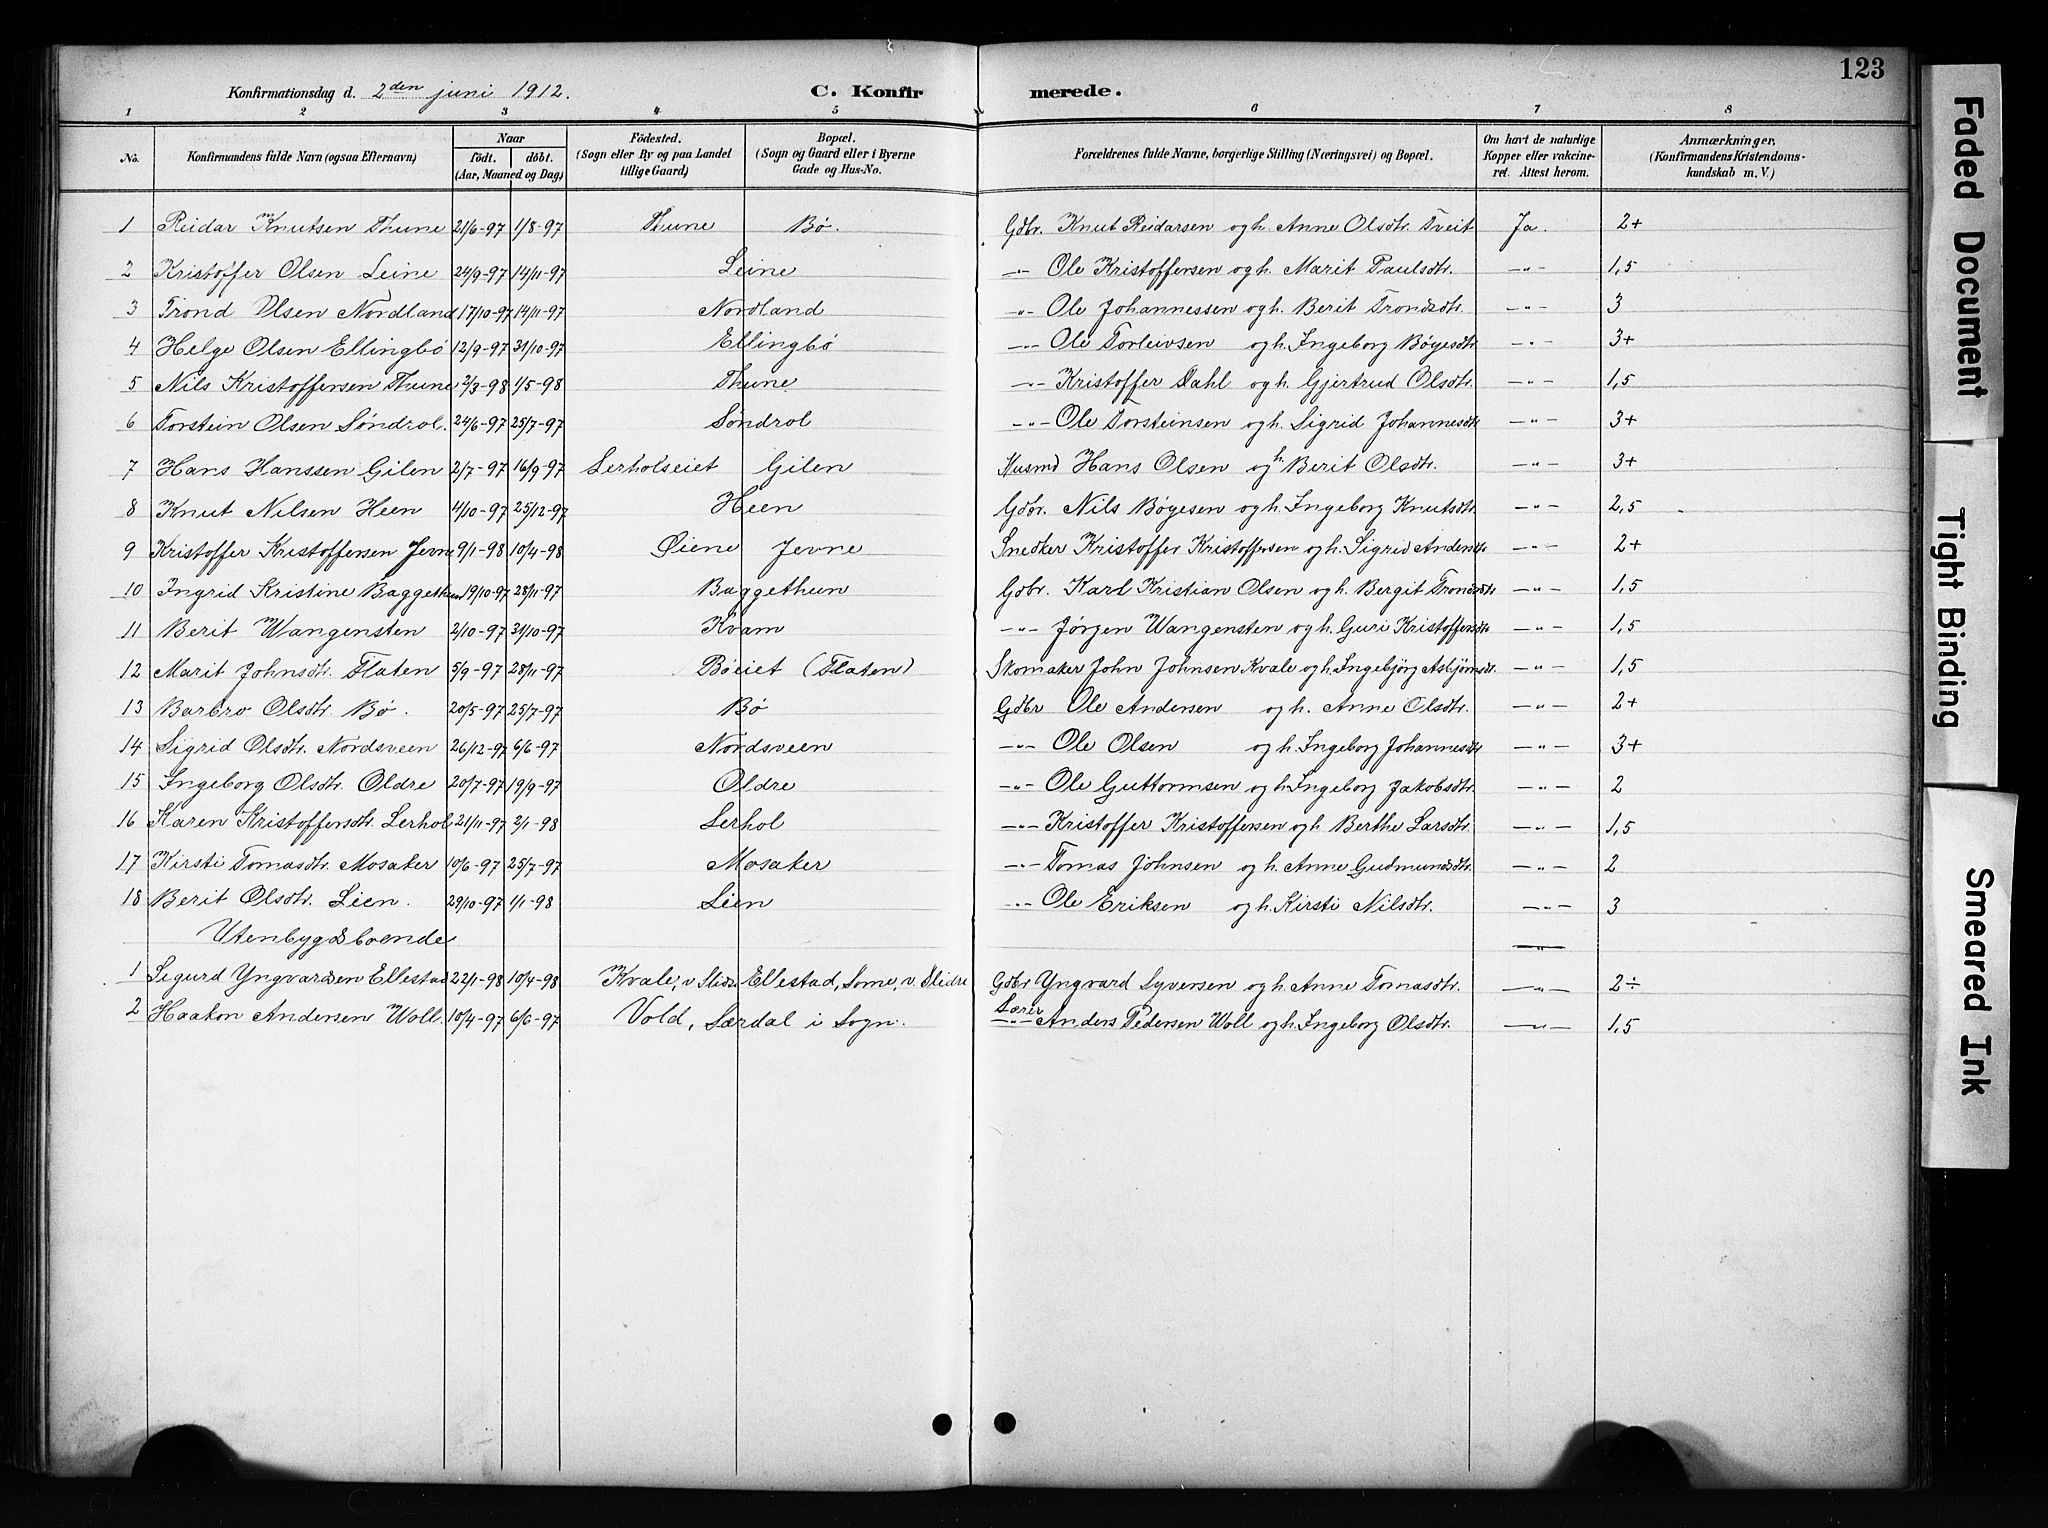 123
Konfirmationsdag d. 2den juni 1912. C. Konfirmerede.
1 2 3 4 5 6 7 8
No. Konfirmandens fulde Navn (ogsaa Efternavn) Naar födt. döbt. (Aar, Maaned og Dag) Födested. (Sogn eller By og paa Landet tillige Gaard) Bopæl. (Sogn og Gaard eller i Byerne Gade og Hus-No. Forældrenes fulde Navne, borgerlige Stilling (Næringsvei) og Bopæl. Om havt de naturlige Kopper eller vakcineret. Attest herom. Anmærkninger. (Konfirmandens Kristendomskundskab m. V.)
1 Reidar Knutsen Thune 21/6-97 1/8-97 Thune Bø. Gdbr. Knut Reidarsen og h. Anne Olsdtr. Tveit Ja. 2+
2 Kristoffer Olsen Leine 24/9-97 14/11-97 Leine -"- Ole Kristoffersen og h. Marit Paulsdtr. -"- 1,5
3 Trond Olsen Nordland 17/10-97 14/11-97 Nordland -"- Ole Johannessen og h. Berit Trondsdtr. -"- 3
4 Helge Olsen Ellingbø 12/9-97 31/10-97 Ellingbø -"- Ole Torleivsen og h. Ingeborg Bøyesdtr. -"- 3+
5 Nils Kristoffersen Thune 2/3-98 1/5-98 Thune -"- Kristoffer Dahl og h. Gjertrud Olsdtr. -"- 1,5
6 Torstein Olsen Søndrol. 24/6-97 25/7-97 Søndrol -"- Ole Torsteinsen og h. Sigrid Johannesdtr. -"- 3+
7 Hans Hanssen Gilen 2/7-97 16/9-97 Lerholseiet Gilen Husmd Hans Olsen og h. Berit Olsdtr. -"- 3+
8 Knut Nilsen Heen 4/10-97 25/12-97 Heen Gdbr. Nils Bøyesen og h. Ingeborg Knutsdtr. -"- 2,5
9 Kristoffer Kristoffersen Jevne 9/1-98 10/4-98 Øiene Jevne Snedker Kristoffer Kristoffersen og h. Sigrid Andersdtr. -"- 2+
10 Ingrid Kristine Baggethun 19/10-97 28/11-97 Baggethun Gdbr. Karl Kristian Olsen og h. Bergit Trondsdtr. -"- 1,5
11 Berit Wangensten 2/10-97 31/10-97 Kvam -"- Jørgen Wangensten og h. Guri Kristoffersdtr. -"- 1,5
12 Marit Johnsdtr. Flaten 5/9-97 28/11-97 Bøeiet (Flaten) Skomaker John Johnsen Kvale og h. Ingebjørg Asbjørnsdtr. -"- 1,5
13 Barbro Olsdtr. Bø. 20/5-97 25/7-97 Bø Gdbr Ole Andersen og h. Anne Olsdtr. -"- 2+
14 Sigrid Olsdtr. Nordsveen 26/12-97 6/6-97 Nordsveen -"- Ole Olsen og h. Ingeborg Johannesdtr. -"- 3+
15 Ingeborg Olsdtr. Oldre 20/7-97 19/9-97 Oldre -"- Ole Guttormsen og h. Ingeborg Jakobsdtr. -"- 2
16 Karen Kristoffersdtr. Lerhol 21/11-97 2/1-98 Lerhol -"- Kristoffer Kristoffersen og h. Berthe Larsdtr. -"- 1,5
17 Kirsti Tomasdtr. Mosaker 10/6-97 25/7-97 Mosaker -"- Tomas Johnsen og h. Anne Gudmundsdtr. -"- 2
18 Berit Olsdtr. Lien. 29/10-97 1/1-98 Lien -"- Ole Eriksen og h. Kirsti Nilsdtr. -"- 3
Utenbygdsboende -"-
1 Sigurd Yngvardsen Ellestad 22/1-98 10/4-98 Kvale, v Slidr. Ellestad, Lome, v. Slidre Gdbr Yngvard Syversen og h. Anne Tomasdtr. -"- 2÷
2 Haakon Andersen Woll. 10/4-97 6/6-97 Vold, Lærdal i Sogn. Lærer -"- Anders Pedersen Woll og h. Ingeborg Olsdtr. -"- 1,5
Faded Document
Tight Binding
Smeared Ink